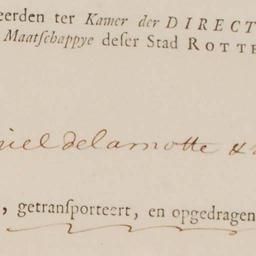 eerden ter Kamer der DIRECT
Maatſchappye deſer Stad ROTTE
iel delamotte &
, getranſporteert, en opgedragen